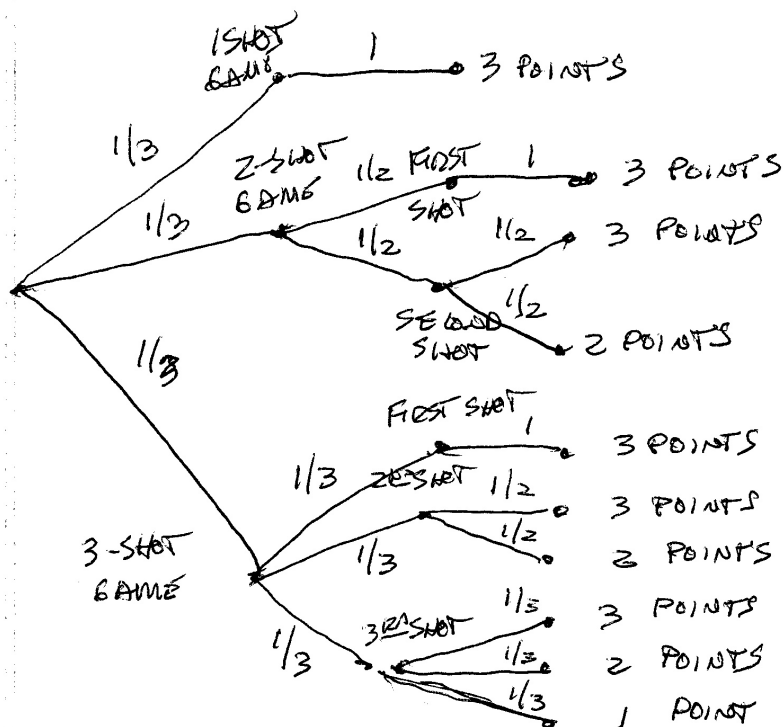 1 SHOT GAME
1
3 POINTS
1/3
2-SHOT GAME
1/3
1/2
FIRST SHOT
1
3 POINTS
1/2
1/2
3 POINTS
SECOND SHOT
1/2
2 POINTS
1/3
FIRST SHOT
1
3 POINTS
1/3
1/2
3 POINTS
3-SHOT GAME
1/3
1/2
2 POINTS
1/3
3 POINTS
1/3
3RD SHOT
1/3
2 POINTS
1/3
1 POINT